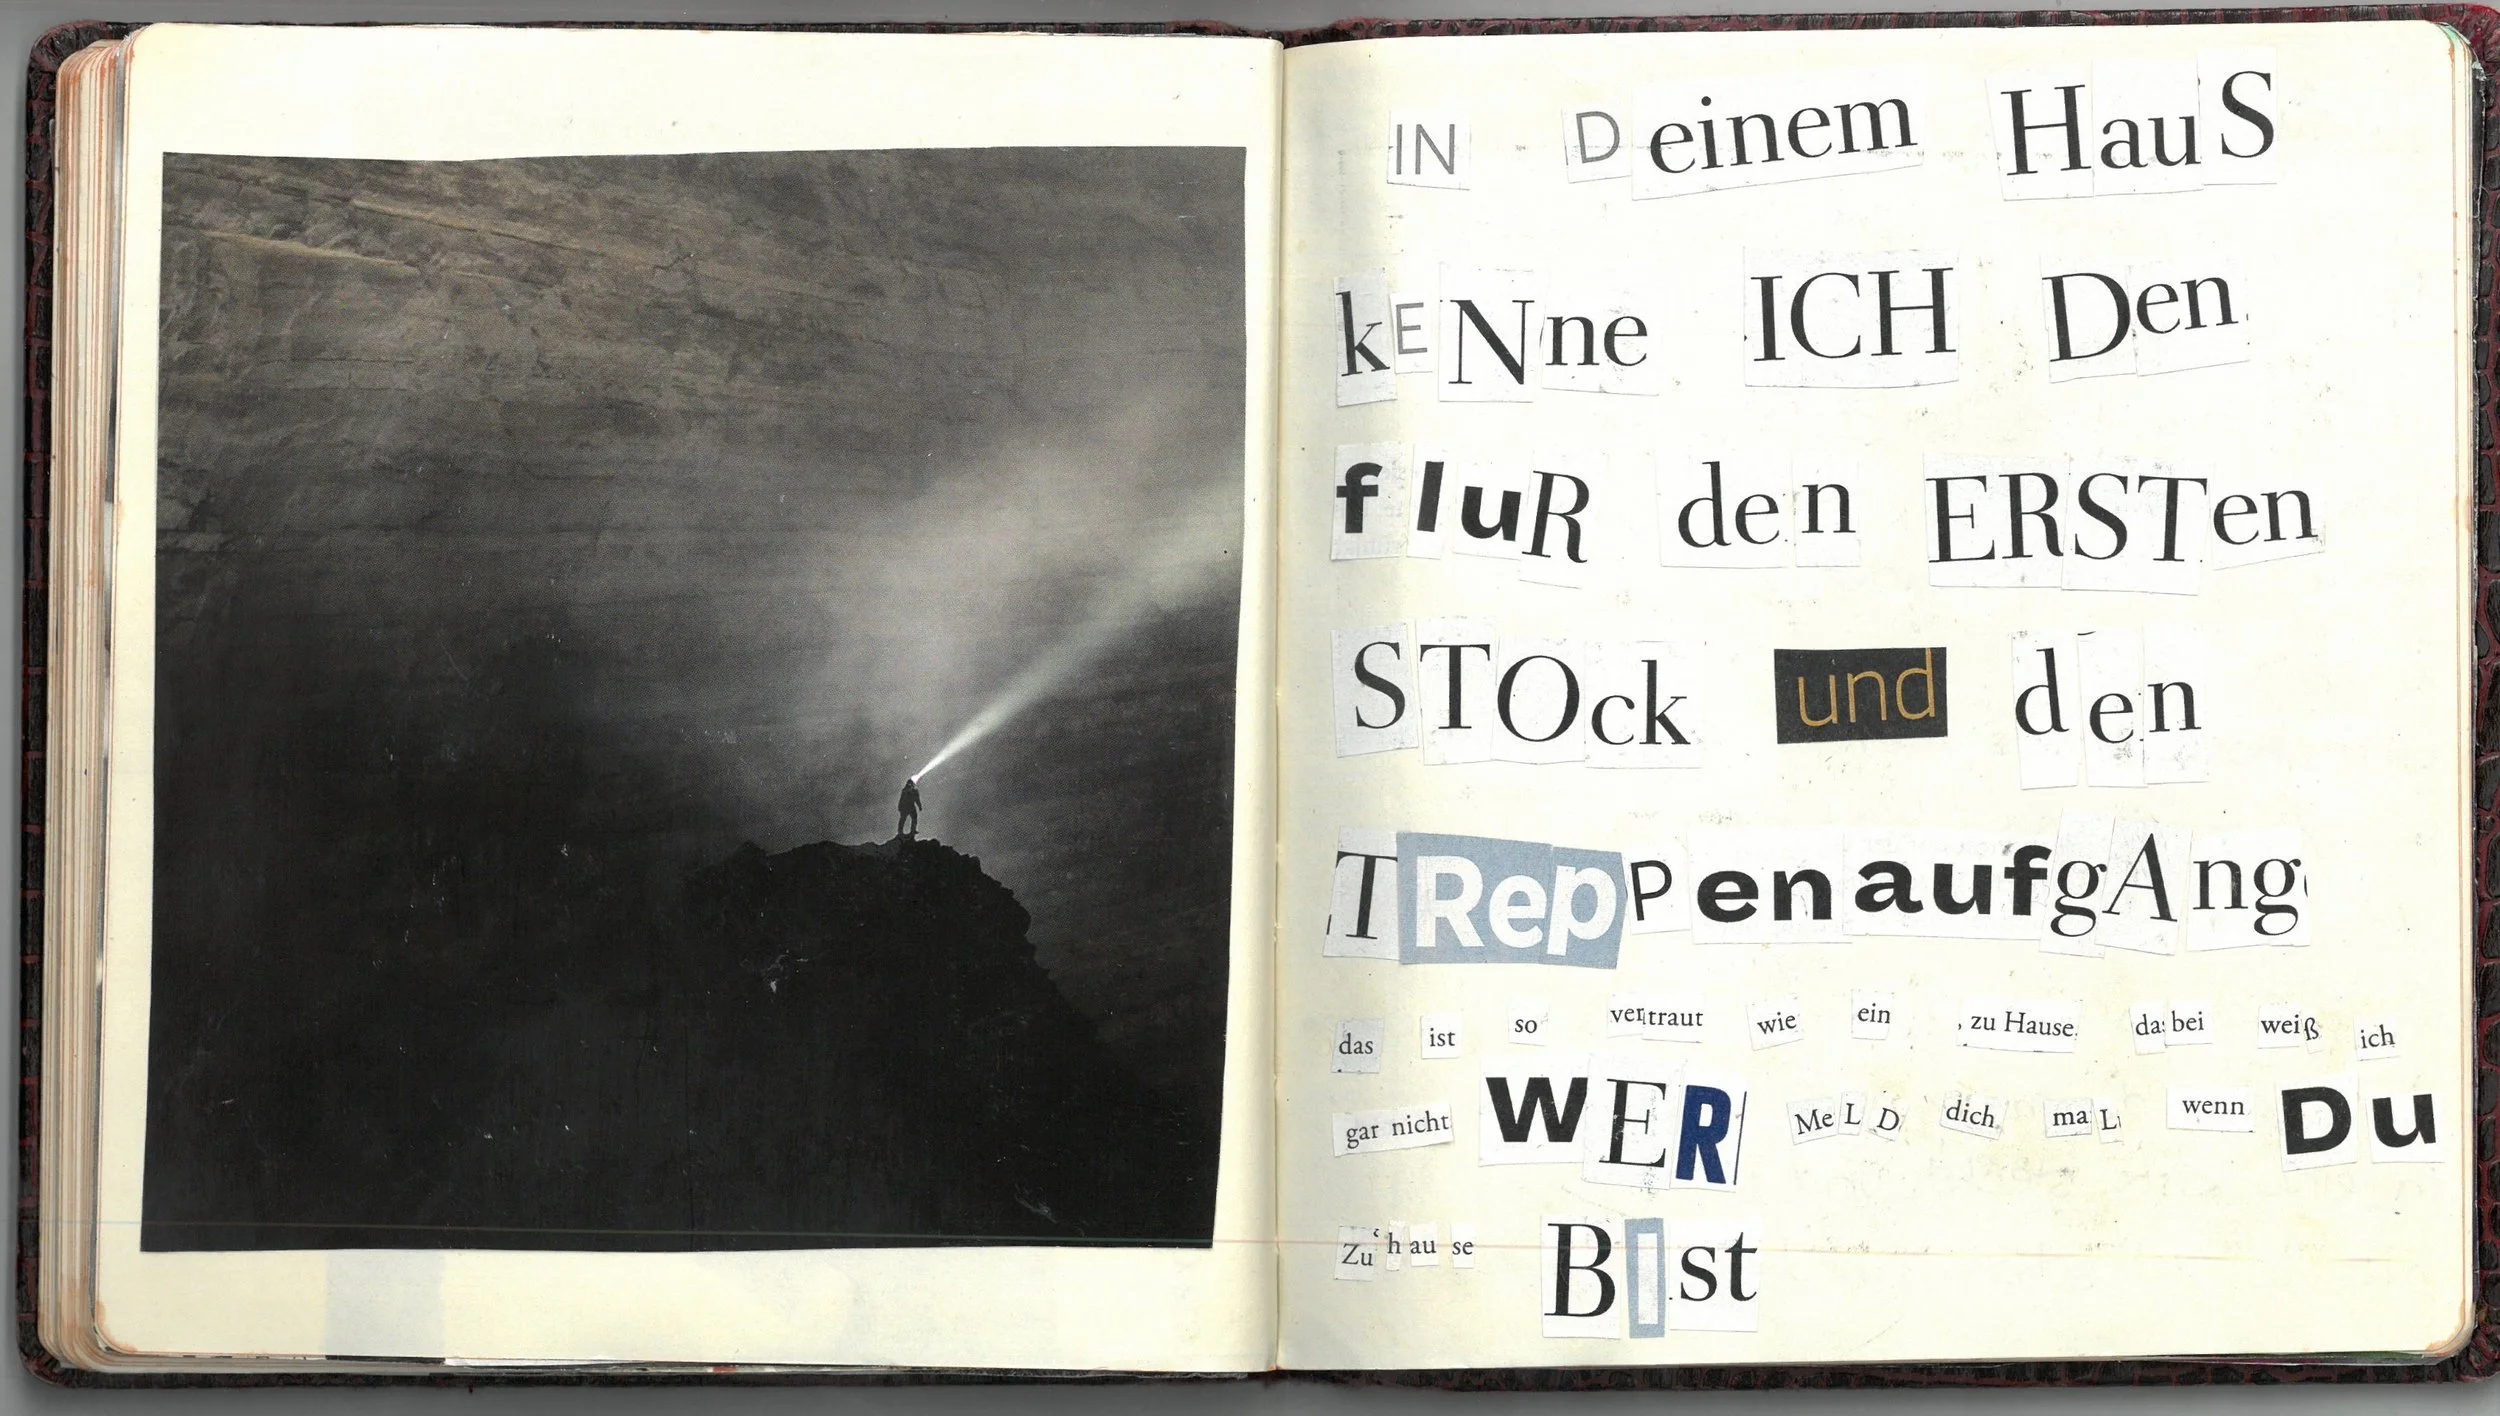 IN Deinem HauS
kENne ICH Den
fluR den ERSTen
STOck und den
TRepPenaufgAng
das ist so vertraut wie ein zu Hause dabei weiß ich
gar nicht WER MeLD dich maL wenn Du
Zu hause BIst